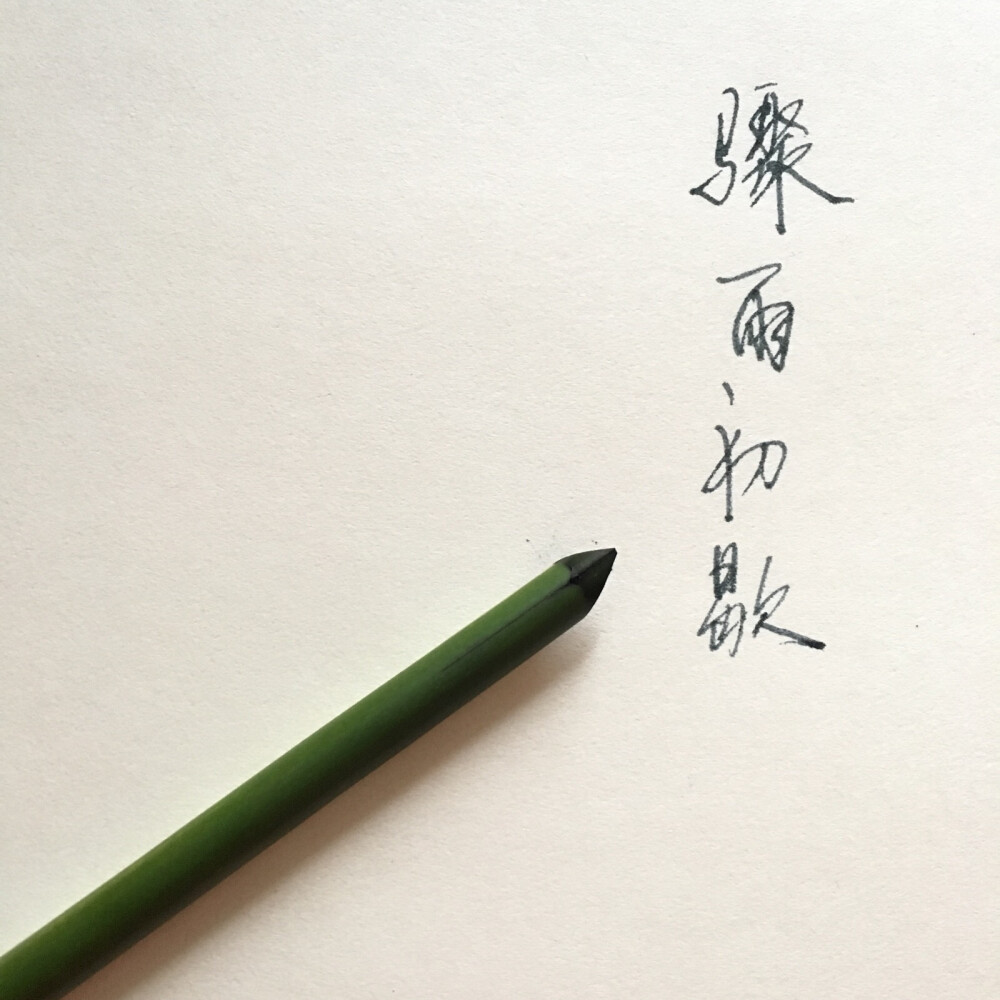 骤雨初歇